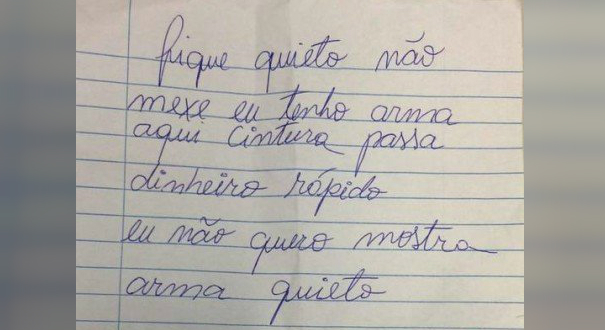 fique quieto não
mexe eu tenho arma
aqui cintura passa
dinheiro rápido
eu não quero mostra
arma quieto